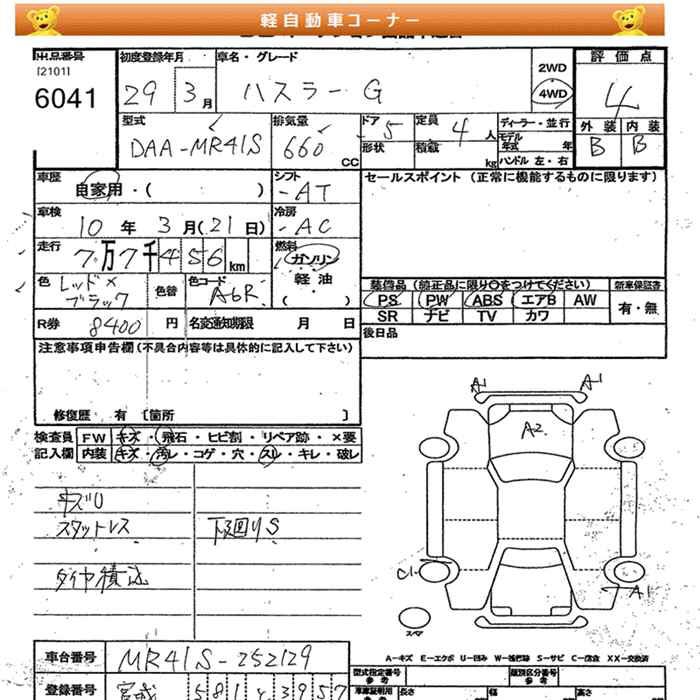 軽自動車コーナー
出品番号 初度登録年月 車名・グレード 2WD 評価点
[2101] 29 3月 ハスラー G 4WD 4
6041
型式 排気量 ドア 5 定員 4 人 ディーラー・並行 外装 内装
DAA-MR41S 660 CC 形状 積載 kg モデル年式 年 B B
ハンドル 左・右
車歴 自家用・( ) シフト -AT セールスポイント (正常に機能するものに限ります)
車検 10 年 3 月(21 日) 冷房 -AC
走行 7万7千456km 燃料 ガソリン
色 レッド×ブラック 色替 色コード A6R 軽油 ( )
装備品 (純正品に限り○をつけてください) 新車保証書
PS PW ABS エアB AW 有・無
SR ナビ TV カワ
R券 8400 円 名変通知期限 月 日 後日品
注意事項申告欄(不具合内容等は具体的に記入して下さい)
修復歴 有 〔箇所 〕
検査員 FW キズ・飛石・ヒビ割・リペア跡・×要
記入欄 内装 キズ・汚レ・コゲ・穴・スレ・キレ・破レ
A1 A1
A2
スタットレス 下回りS
C1
タイヤ積込
A1
スペア
A-キズ E-エクボ U-凹み W-波 S-サビ C-腐食 XX-交換済
車台番号 MR41S-252129
型式指定番号 類別区分番号
登録番号 宮城 581 3957
長さ 幅 高さ